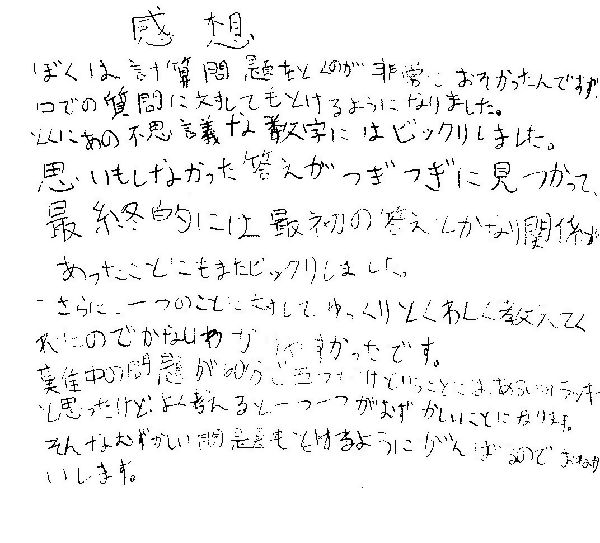 感想
ぼくは計算問題をとくのが非常におそかったんですが
口での質問に対してもとけるようになりました。
とくにあの不思議な数字にはビックリしました。
思いもしなかった答えがつぎつぎに見つかって、
最終的には最初の答えとかなり関係が
あったことにもまたビックリしました。
さらに、一つのことに対してゆっくりとくわしく教えてく
れたのでかなりわかりやすかったです。
問題が
と思ったけどよく考えると一つ一つがむずかしいことになります。
そんなむずかしい問題もとけるようにがんばるのでおねが
いします。